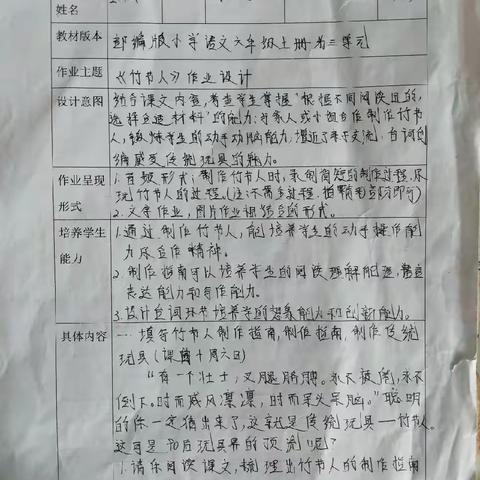 姓名
教材版本 部编版小学语文六年级上册第三单元
作业主题 《竹节人》作业设计
设计意图 结合课文内容,考查学生掌握"根据不同阅读目的,
选择合适材料"的能力;与家人或小组合作制作竹节
人,锻炼学生的动手动脑能力,增近了亲子交流,台词创
编感受传统玩具的魅力。
作业呈现 1.视频形式:制作竹节人时,录制简短的制作过程,及
形式 玩竹节人的过程。(注:不需全过程,拍精彩部分即可)
2.文本作业,图片作业相结合的形式。
培养学生 1.通过制作竹节人,能培养学生的动手操作能
能力 力及合作精神。
2.制作指南可以培养学生的阅读理解能力,书面
表达能力和写作能力。
3.设计台词环节培养学生的想象能力和创新能力。
具体内容 一、填写竹节人制作指南,制作指南,制作传统
玩具(课
"有一个壮士,叉腿张胳膊。永不疲倦,永不
倒下。时而威风凛凛,时而呆头呆脑。"聪明
的你一定猜出来了,这就是传统玩具——竹节人。
这可是90后玩具界的顶流呢?
1.请你阅读课文,梳理出竹节人的制作指南